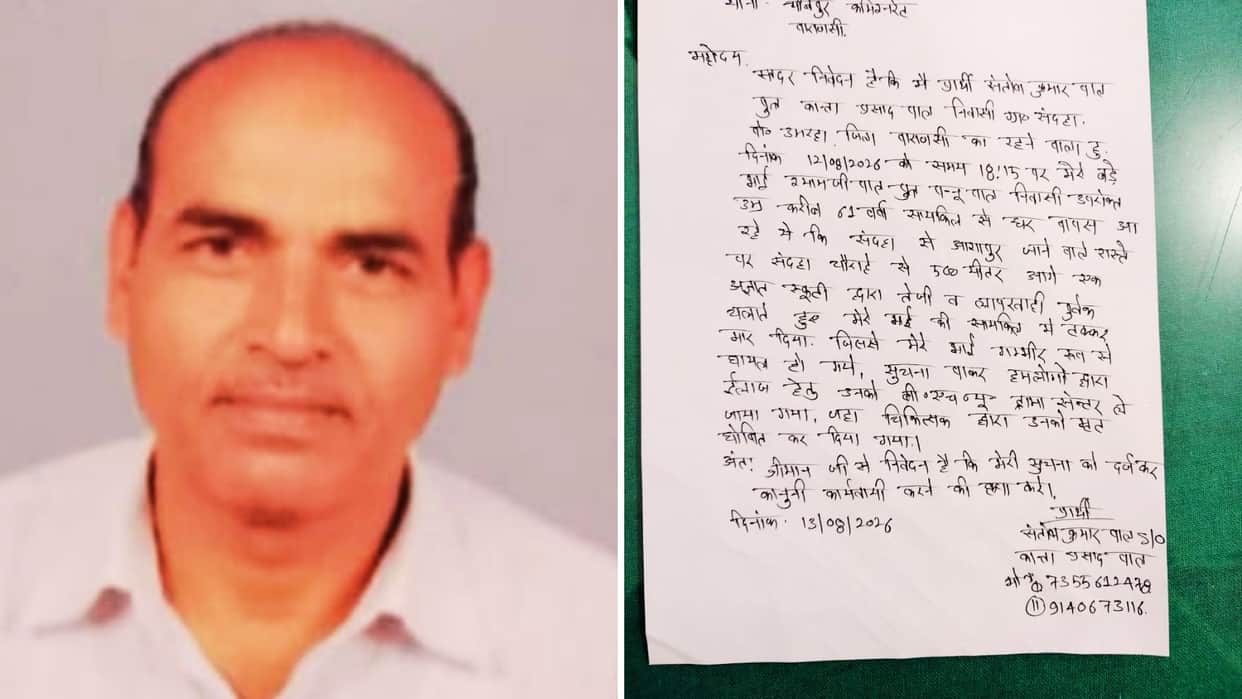 थाना - चौबेपुर कमिश्नरेट
वाराणसी.
महोदय,
सादर निवेदन है कि मै प्रार्थी संतोष कुमार पाल
पुत्र कान्ता प्रसाद पाल निवासी ग्रा० संदहा.
पो० उमरहा, जिला वाराणसी का रहने वाला हु.
दिनांक 12/08/2026 को समय 18:15 पर मेरे बड़े
भाई श्यामजी पाल पुत्र पन्नू पाल निवासी उपरोक्त
उम्र करीब 61 वर्ष सायकिल से घर वापस आ
रहे थे कि संदहा से आशापुर जाने वाले रास्ते
पर संदहा चौराहे से 500 मीटर आगे एक
अज्ञात स्कूटी द्वारा तेजी व लापरवाही पुर्वक
चलाते हुए मेरे भाई की सायकिल मे टक्कर
मार दिया. जिससे मेरे भाई गम्भीर रूप से
घायल हो गये, सुचना पाकर हमलोगो द्वारा
ईलाज हेतु उनको बी०एच०यू० ट्रामा सेन्टर ले
जाया गया, जहा चिकित्सक द्वारा उनको मृत
घोषित कर दिया गया।
अंत: श्रीमान जी से निवेदन है कि मेरी सुचना को दर्ज कर
कानुनी कार्यवायी करने की कृपा करे।
दिनांक - 13/08/2026
प्रार्थी
संतोष कुमार पाल S/O
कान्ता प्रसाद पाल
मो० 7355612478
(11) 9140673116.